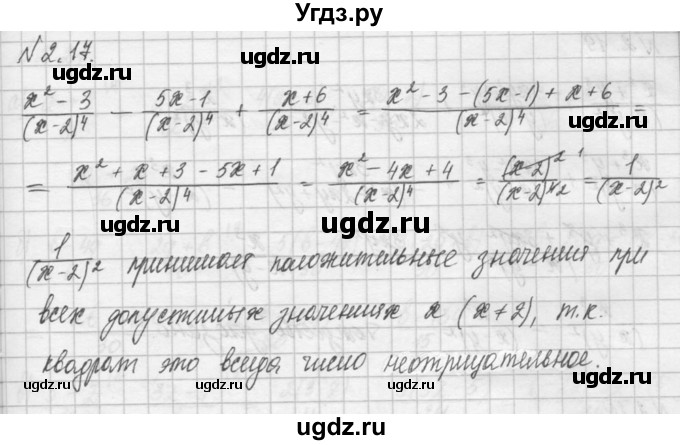 Угдз.ру
N 2.17.
(x² - 3)/(x-2)⁴ - (5x-1)/(x-2)⁴ + (x+6)/(x-2)⁴ = (x² - 3 - (5x-1) + x + 6)/(x-2)⁴ =
= (x² + x + 3 - 5x + 1)/(x-2)⁴ = (x² - 4x + 4)/(x-2)⁴ = (x-2)² ¹/(x-2)⁴ ² = 1/(x-2)²
1/(x-2)² принимает положительные значения при
всех допустимых значениях x (x≠2), т.к.
квадрат это всегда число неотрицательное.
ugdz.ru ugdz.ru ugdz.ru
ugdz.ru ugdz.ru
ugdz.ru
ugdz.ru ugdz.ru ugdz.ru
ugdz.ru ugdz.ru
ugdz.ru ugdz.ru ugdz.ru
Угдз.ру